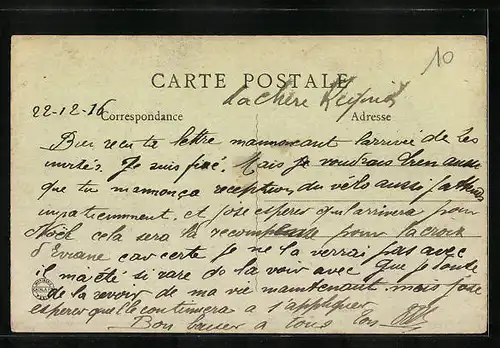 10
CARTE POSTALE
La chère
22-12-16
Correspondance
Adresse
Bien reçu ta lettre m'annonçant l'arrivée de tes
invités. Je suis fixé. Mais je voudrais bien aussi
que tu m'annonça reception du vélo aussi j'attends
impatiemment. et j'ose esperer qu'il arrivera pour
Noël cela sera la pour la croix
car certe je ne la verrai pas avec
il m'a été si rare de la voir avec que je doute
de la revoir de ma vie maintenant mais j'ose
esperer que le continuera a s'appliquer
Bon baiser a tous ton